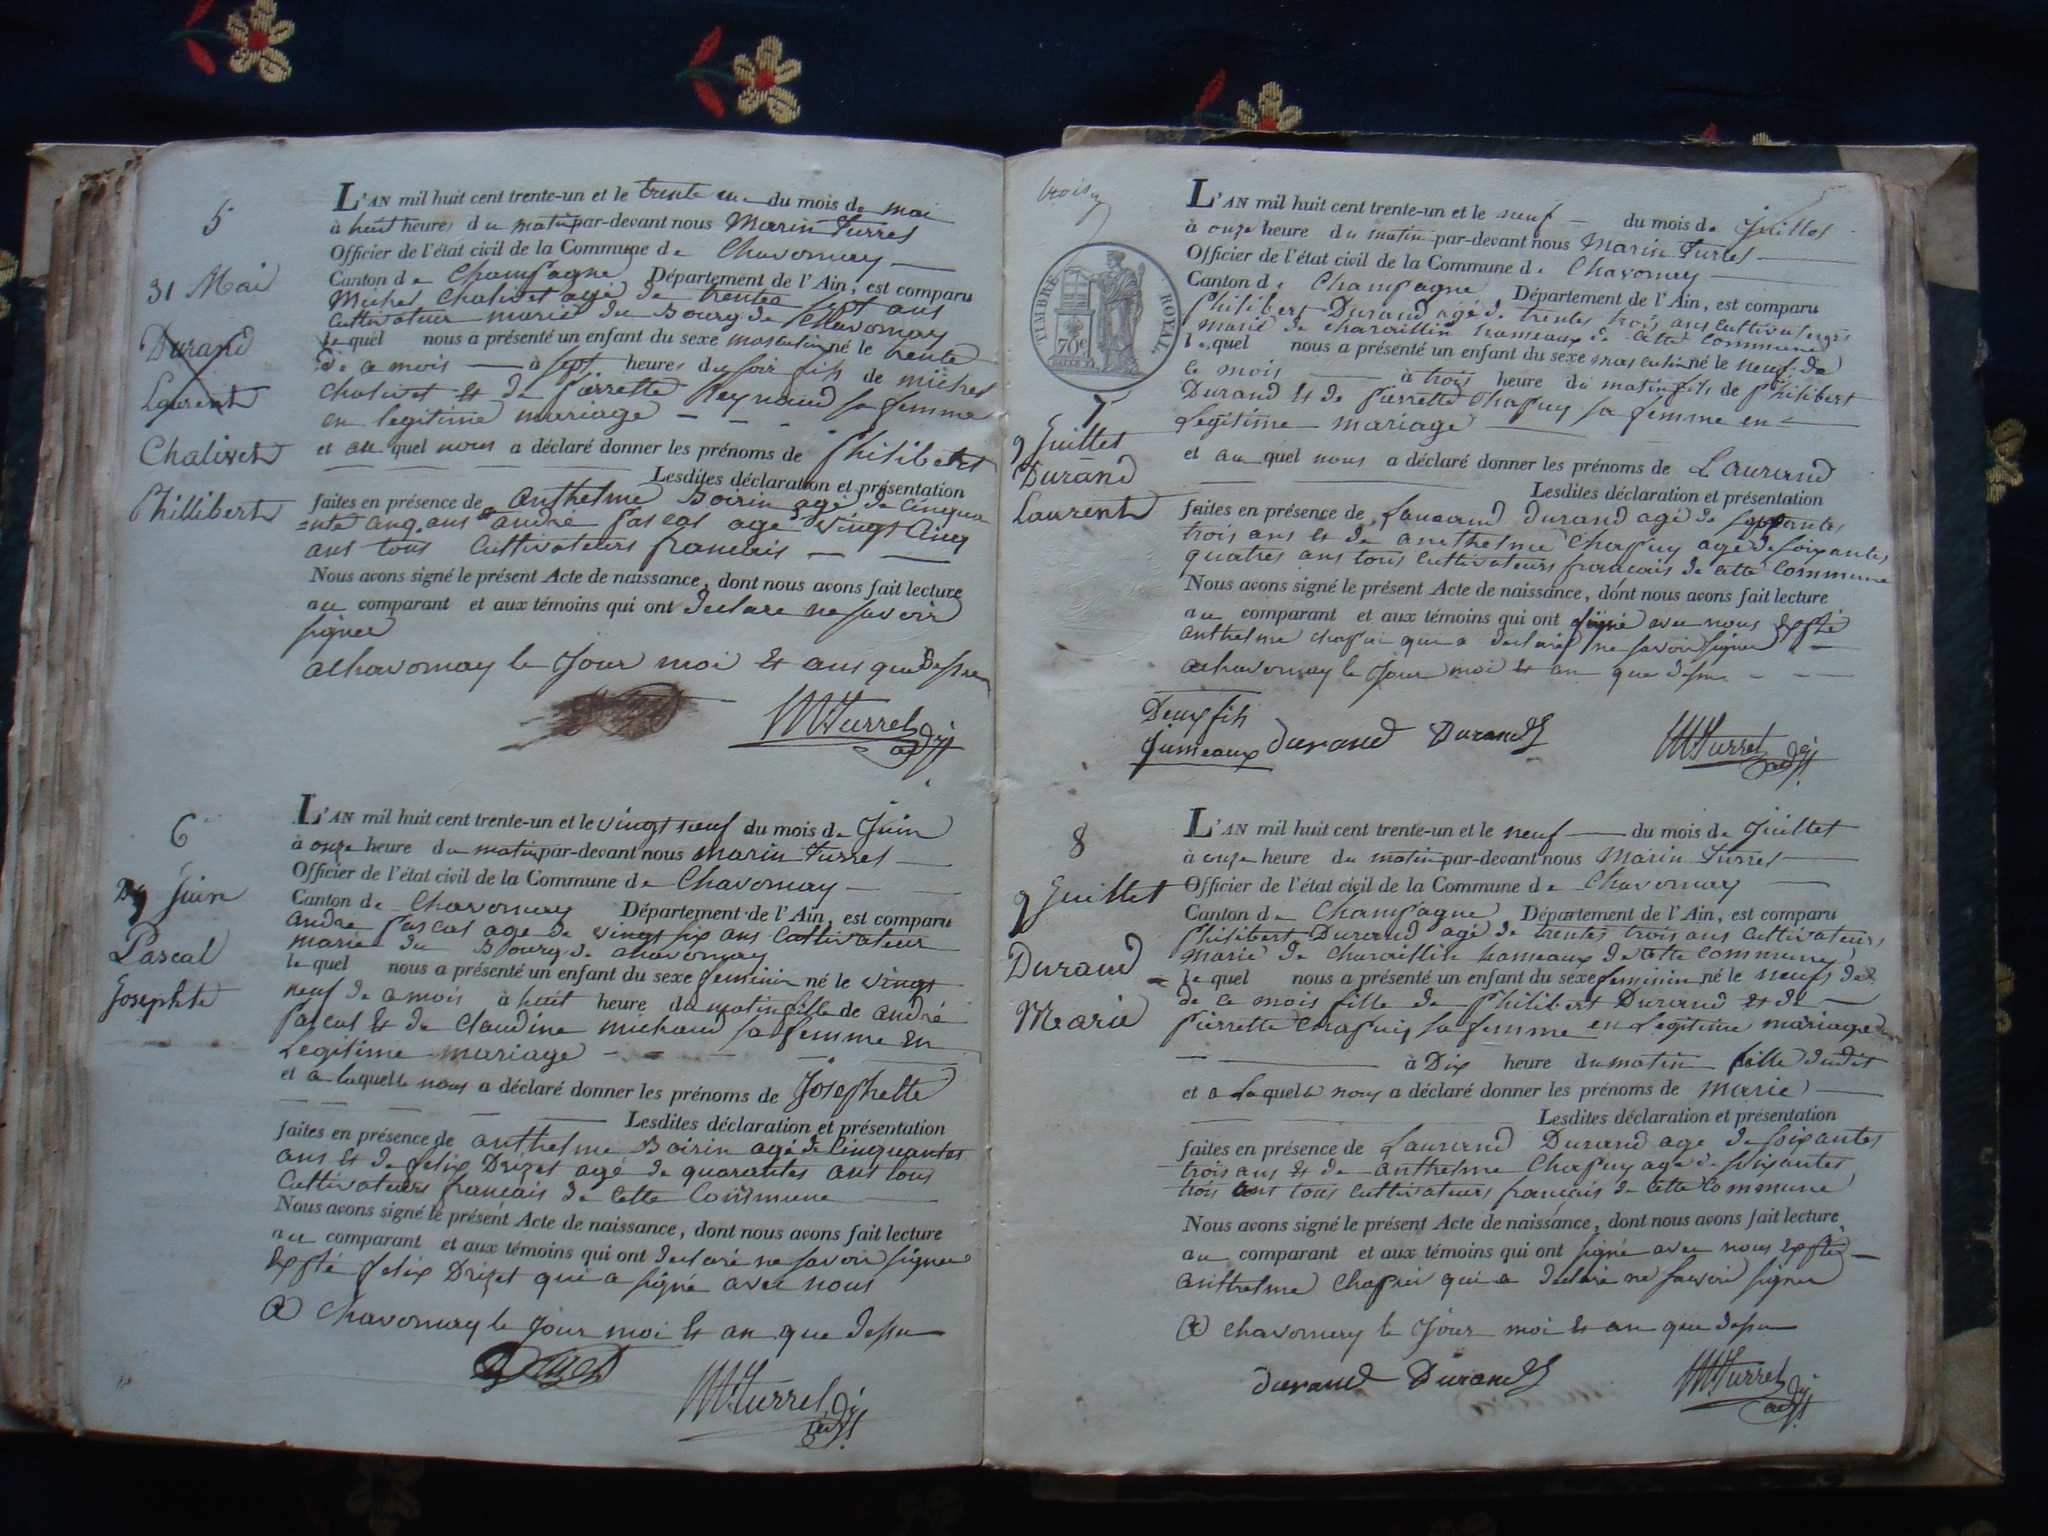 5
31 Mai
Durand
Laurent
Chalivet
Phillibert
L'AN mil huit cent trente-un et le trente un du mois de mai
à huit heures du matin par-devant nous Marin Turrel
Officier de l'état civil de la Commune de Chavornay
Canton de Champagne Département de l'Ain, est comparu
Michel Chalivet agé de trente sept ans
Cultivateur marié du Bourg de Chavornay
le quel nous a présenté un enfant du sexe masculin né le trente
de ce mois à sept heures du soir fils de michel
chalivet et de pierrette Reynaud sa femme
en legitime mariage
et au quel nous a déclaré donner les prénoms de Philibert
Lesdites déclaration et présentation
faites en présence de anthelme Boirin agé de cinqua
ante cinq ans andré pascal agé vingt cinq
ans tous cultivateurs francais
Nous avons signé le présent Acte de naissance, dont nous avons fait lecture
au comparant et aux témoins qui ont declaré ne savoir
signer
a Chavornay le Jour moi et ans que dessu
M Turrel adj.
6
29 Juin
Pascal
Josephte
L'AN mil huit cent trente-un et le vingt neuf du mois de Juin
à onze heure du matin par-devant nous marin Turrel
Officier de l'état civil de la Commune de Chavornay
Canton de Chavornay Département de l'Ain, est comparu
andré pascal agé de vingt six ans Cultivateur
marié du Bourg de chavornay
le quel nous a présenté un enfant du sexe feminin né le vingt
neuf de ce mois à huit heure du matin fille de andré
pascal et de claudine michaud sa femme en
Legitime mariage
et a laquelle nous a déclaré donner les prénoms de Josephette
Lesdites déclaration et présentation
faites en présence de anthelme Boirin agé de Cinquantes
ans et de felix Drizet agé de quarantes ans tous
Cultivateurs francais de Cette Commune
Nous avons signé le présent Acte de naissance, dont nous avons fait lecture
au comparant et aux témoins qui ont declaré ne savoir signer
Expté felix Drizet qui a signé avec nous
a Chavornay le Jour moi et an que dessu
Drizet
M Turrel adj.
trois
TIMBRE ROYAL
70c
7
9 Juillet
Durand
Laurent
L'AN mil huit cent trente-un et le neuf du mois de Juillet
à onze heure du matin par-devant nous Marin Turrel
Officier de l'état civil de la Commune de Chavornay
Canton de Champagne Département de l'Ain, est comparu
philibert Durand agé de trentes trois ans cultivateurs
marié de charaillin hameaux de cette commune
le quel nous a présenté un enfant du sexe masculin né le neuf de
ce mois à trois heure du matin fils de philibert
Durand et de pierrette chapuy sa femme en
Legitime mariage
et au quel nous a déclaré donner les prénoms de Laurand
Lesdites déclaration et présentation
faites en présence de Laurand durand agé de soixantes
trois ans et de anthelme Chapuy agé de soixantes
quatres ans tous cultivateurs francais de cette Commune
Nous avons signé le présent Acte de naissance, dont nous avons fait lecture
au comparant et aux témoins qui ont signé avec nous Expté
anthelme chapui qui a declaré ne savoir signer
a chavornay le Jour moi et an que dessu
Deux fils
Jumeaux durand Durand
M Turrel adj.
8
9 Juillet
Durand
Marie
L'AN mil huit cent trente-un et le neuf du mois de Juillet
à onze heure du matin par-devant nous Marin Turrel
Officier de l'état civil de la Commune de Chavornay
Canton de Champagne Département de l'Ain, est comparu
philibert Durand agé de trentes trois ans cultivateurs
marié de charaillin hameaux de cette commune
le quel nous a présenté un enfant du sexe feminin né le neuf de
de ce mois fille de philibert Durand et de
pierrette chapuis sa femme en Legitime mariage
à Dix heure du matin fille dudit
et a laquelle nous a déclaré donner les prénoms de marie
Lesdites déclaration et présentation
faites en présence de Laurand Durand agé de soixantes
trois ans et de anthelme Chapuy agé de soixantes
trois ans tous cultivateurs francais de cette Commune
Nous avons signé le présent Acte de naissance, dont nous avons fait lecture
au comparant et aux témoins qui ont signé avec nous Expté
anthelme chapui qui a declaré ne savoir signer
a chavornay le Jour moi et an que dessu
durand Durand
M Turrel adj.